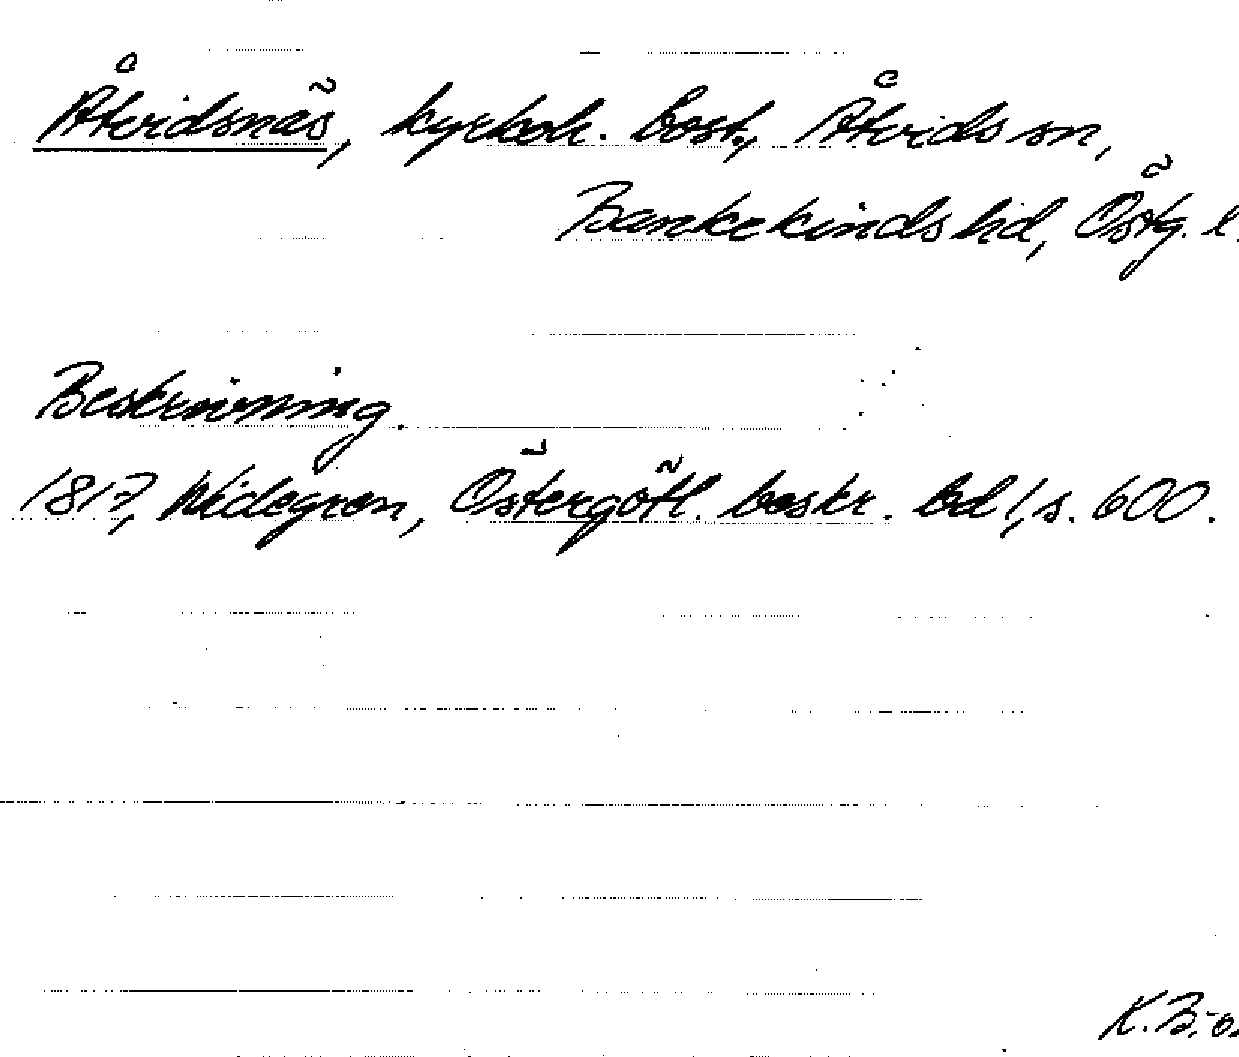 Åtvidsnäs, kyrkoh. bost., Åtvids sn,
Bankekinds hd, Östg. l.
Beskrivning.
1817, Widegren, Östergötl. beskr. Bd 1, s. 600.
K.B.